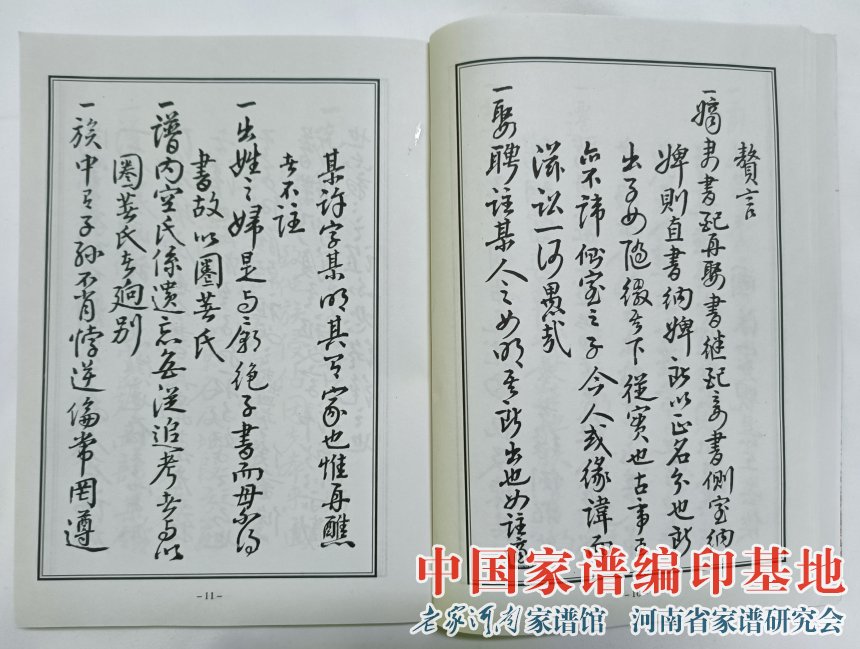 贅言
一嫡妻書配再娶書继配妾書側室納
婢則直書納婢所以正名分也所
出子女随缀下従實也古事
亦不諱側室之子今人或缘諱而
滋訟一何愚哉
一娶聘註某人之女明其所出也女註適
某許字某明其有家也惟再醮
者不註
一出姓之婦是与廟绝子書而母不得
書故以圈某氏
一譜内空氏係遺忘無従追考者与以
圈某氏者逈别
一族中有子孫不肖悖逆倫常罔遵
-11-
中国家谱编印基地
老家河南家谱馆 河南省家谱研究会